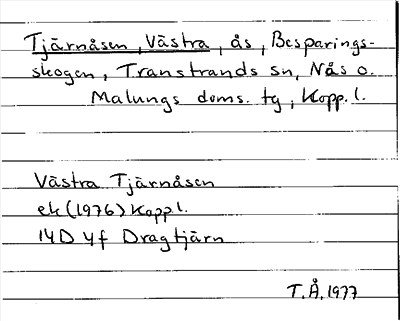 Tjärnåsen, Västra, ås, Besparings-
skogen, Transtrands sn, Nås o.
Malungs doms. tg, Kopp. l.
Västra Tjärnåsen
ek (1976) Kopp l.
14D 4f Dragtjärn
T.Å. 1977